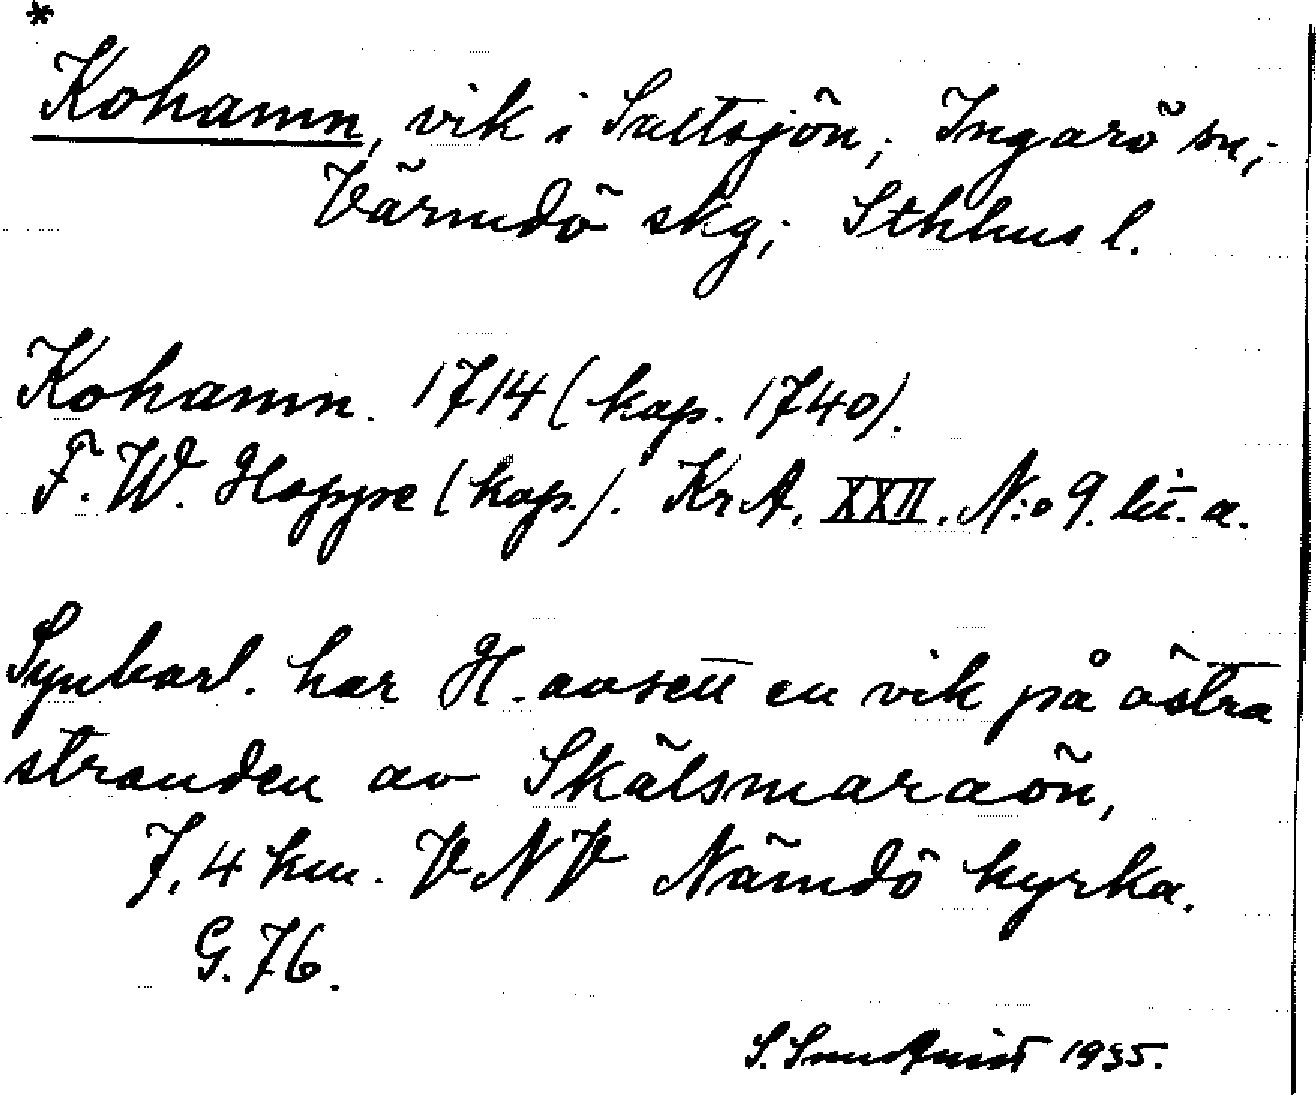 *
Kohamn, vik i Saltsjön; Ingarö sn;
Värmdö skg; Sthlms l.
Kohamn. 1714 (kop. 1740).
F. W. Hoppe (kop.). KrA. XXII. N:o 9. lit. a.
Synbarl. har H. avsett en vik på östra
stranden av Skälsmaraön,
7,4 km. VNV Nämdö kyrka.
G. 76.
S. 1935.